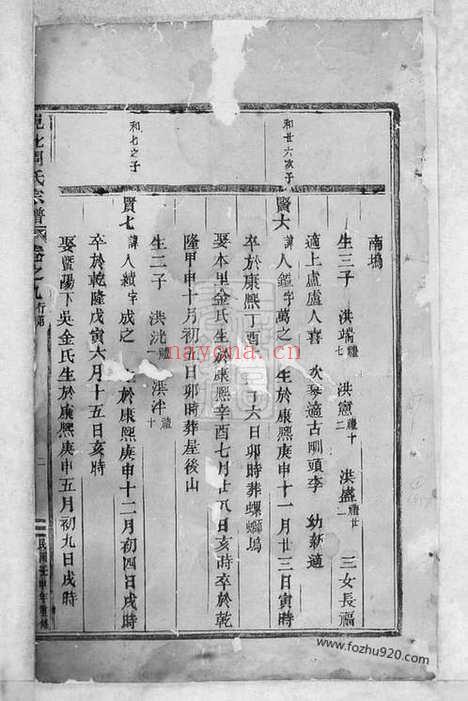 南塢
生三子 洪端禮七 洪憲禮十二 洪盛禮廿一 三女長福
適上盧盧人喜 次琴適古剛頭李 幼新適
和廿六次子
賢大 諱人鑑字萬之 生於康熙庚申十一月廿三日寅時
卒於康熙丁酉 丁六日卯時葬螺螄塢
娶本里金氏生於康熙辛酉七月廿八日亥時卒於乾
隆甲申十月初五日卯時葬屋後山
生二子 洪洸禮一 洪泮禮十
和七之子
賢七 諱人績字成之 生於康熙庚申十二月初四日戌時
卒於乾隆戊寅六月十五日亥時
娶暨陽下吳金氏生於康熙庚申五月初九日戌時
氏宗譜 卷之九 行第
民國壬申年重修
nayona.cn
www.fozhu920.com